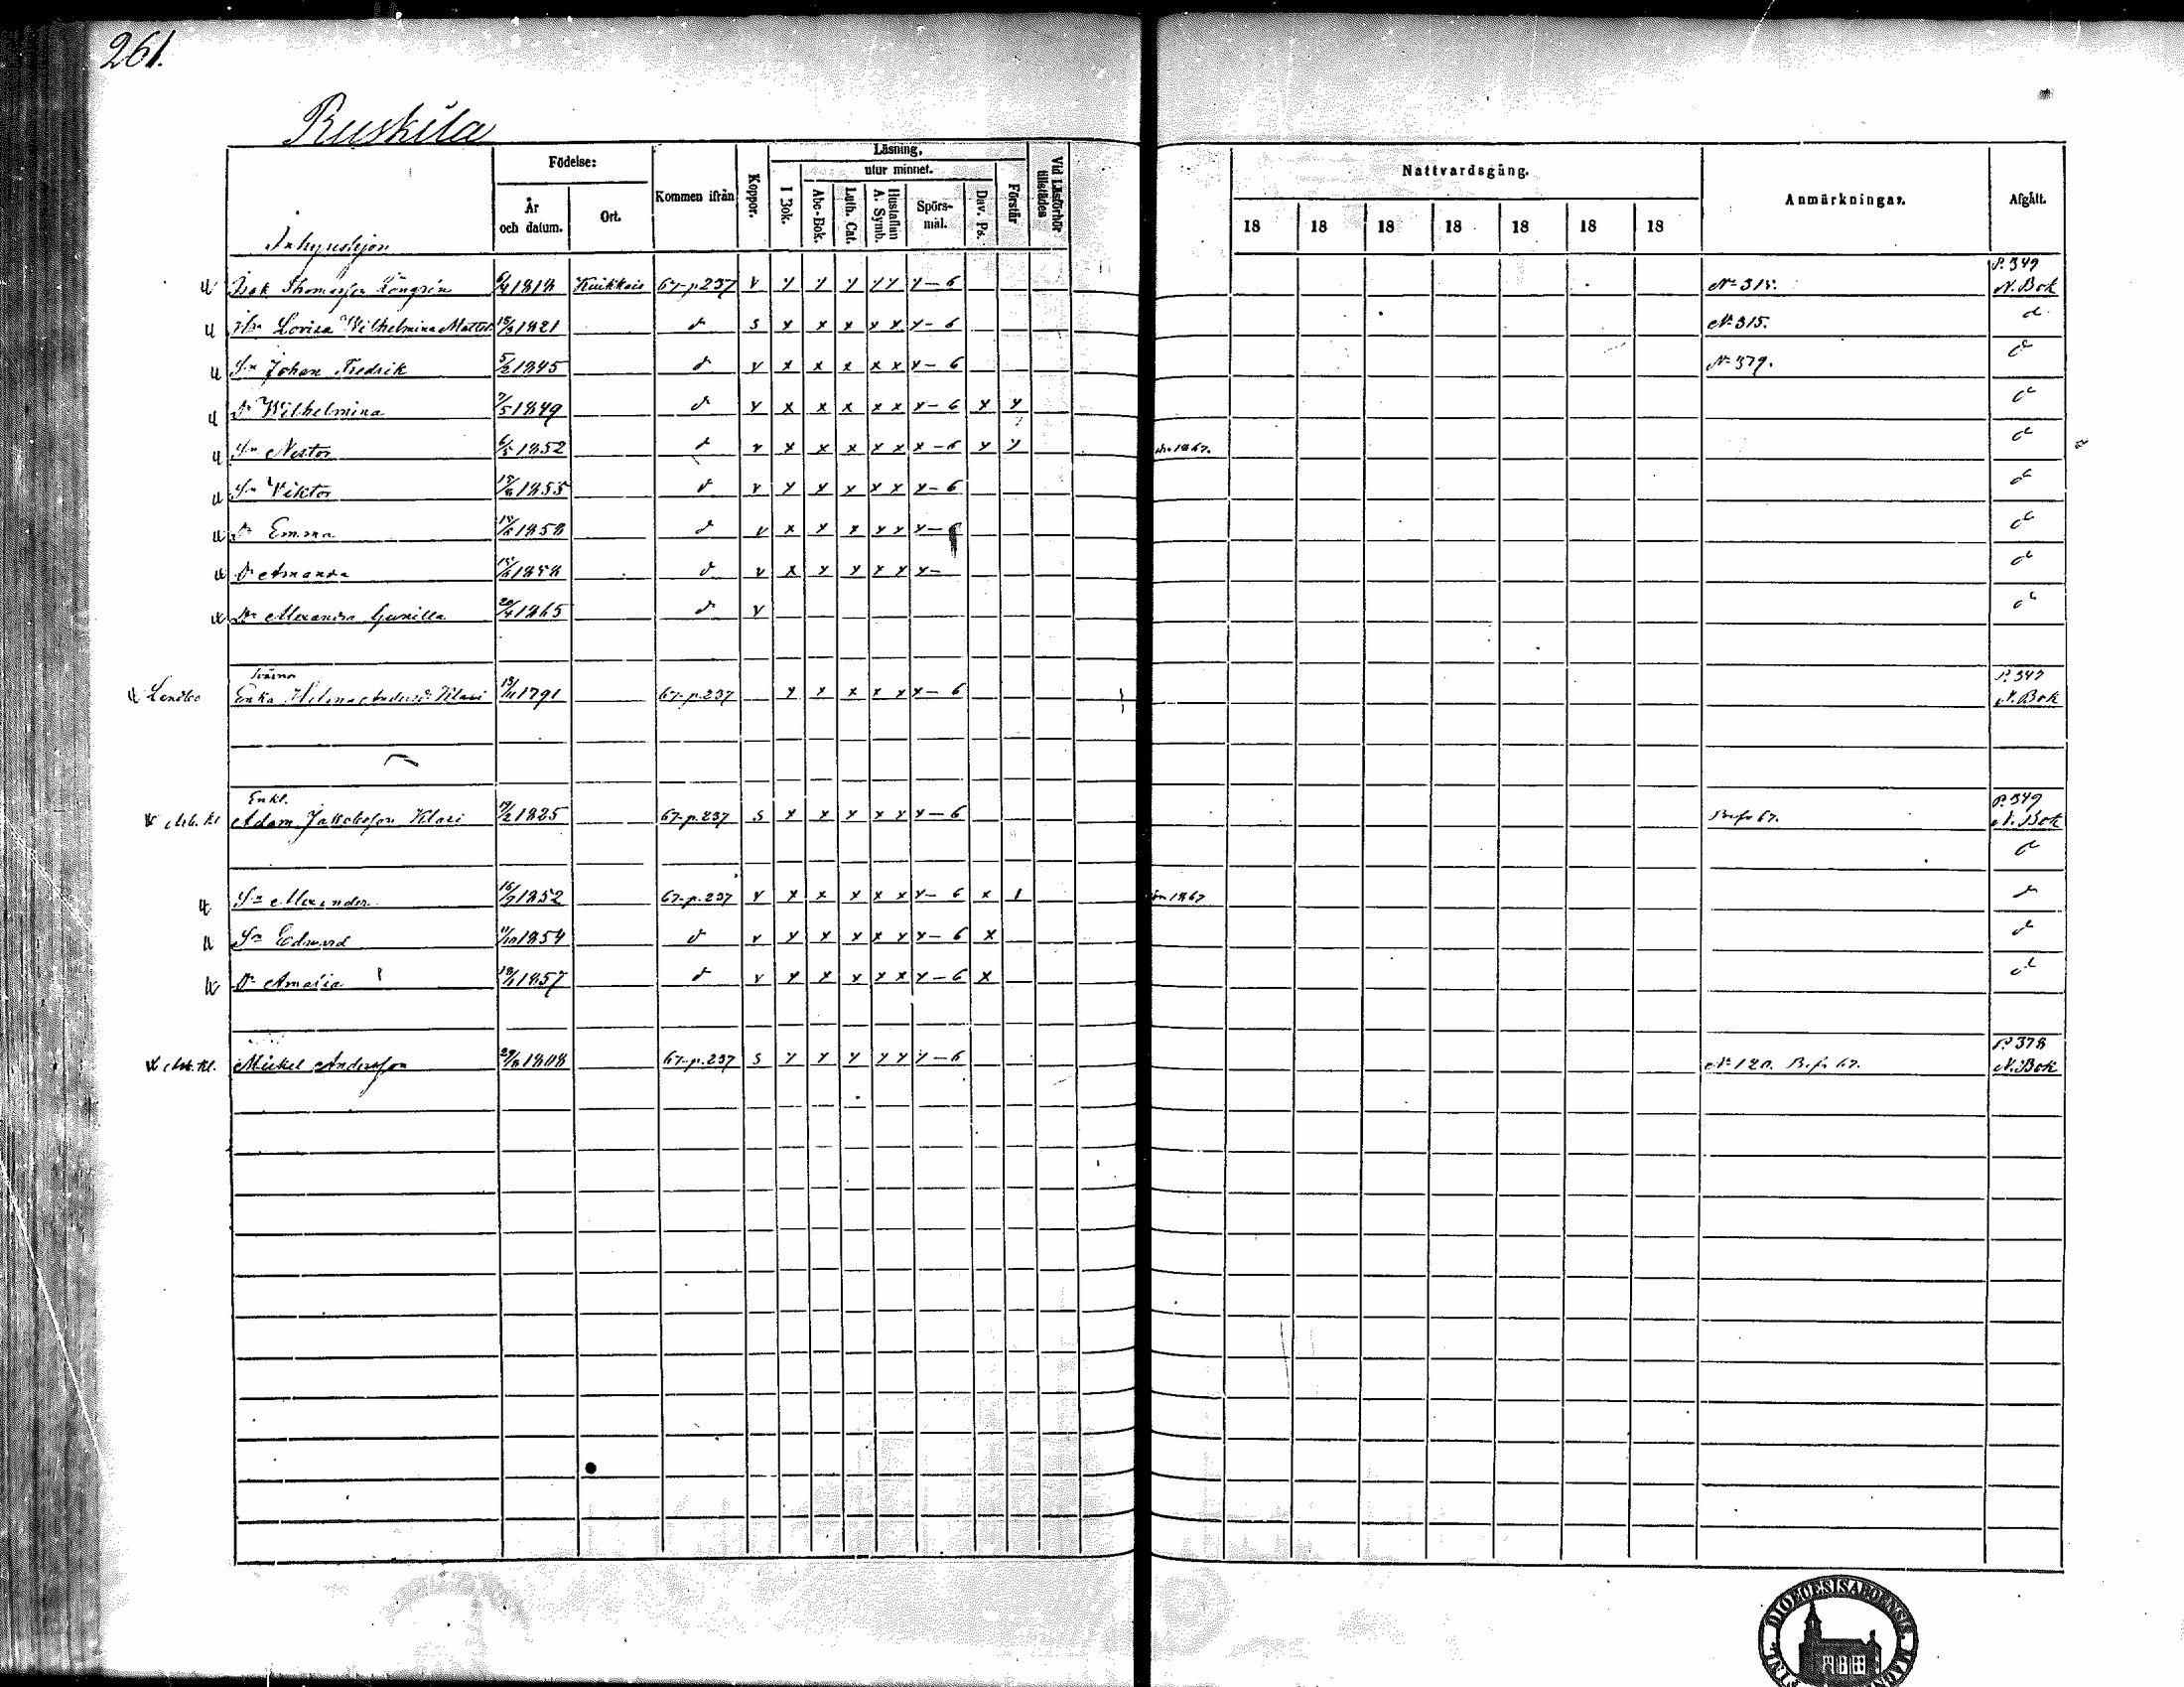 261.
Ruskila
Inhyseshjon
Födelse:
År och datum.
Ort.
Kommen ifrån
Koppor.
Läsning,
utur minnet.
I Bok.
Abc-Bok.
Luth. Cat.
Hustaflan A. Symb.
Spörs-mål.
Dav. Ps.
Förstår
Vid Läsförhör tillstädes
Nattvardsgång.
18 18 18 18 18 18 18
Anmärkningar.
Afgått.
Isak Thomasson Löngrén 6/4 1818 67-p.237 v y y y y y y-6 No 315. P. 349 N. Bok
Hu Lovisa Wilhelmina Mattsd. 15/3 1821 d s x x x x x x-6 No 315. d
Sn Johan Fredrik 5/2 1845 d v x x x x x x-6 No 379. d
Dr Wilhelmina 7/5 1849 d v x x x x x x-6 x y d
Sn Nestor 6/5 1852 d v x x x x x x-6 y y 1867. d
Sn Viktor 1855 d v x x x x x x-6 d
Dr Emma 1858 d v x x x x x x-6 d
Dr Amanda 1858 d v x x x x x x- d
Dr Alexandra Gunilla 20/4 1865 d v d
Enka Helena Andersdr Klari 1791 67-p.237 x x x x x x-6 P. 347 N. Bok
Enkl.
Adam Jakobsson Klari 1825 67-p.237 s x x x x x x-6 67. P. 349 N. Bok
d
Sn Alexander 16/7 1852 67-p.237 v x x x x x x-6 x 1 1867 d
Sn Edvard 11/10 1854 d v x x x x x x-6 x d
Dr Amalia 1857 d v x x x x x x-6 x d
Mickel Andersson 1808 67-p.237 s y y y y y y-6 No 120. 67. P. 378 N. Bok
DIOECESIS ABOENSIS